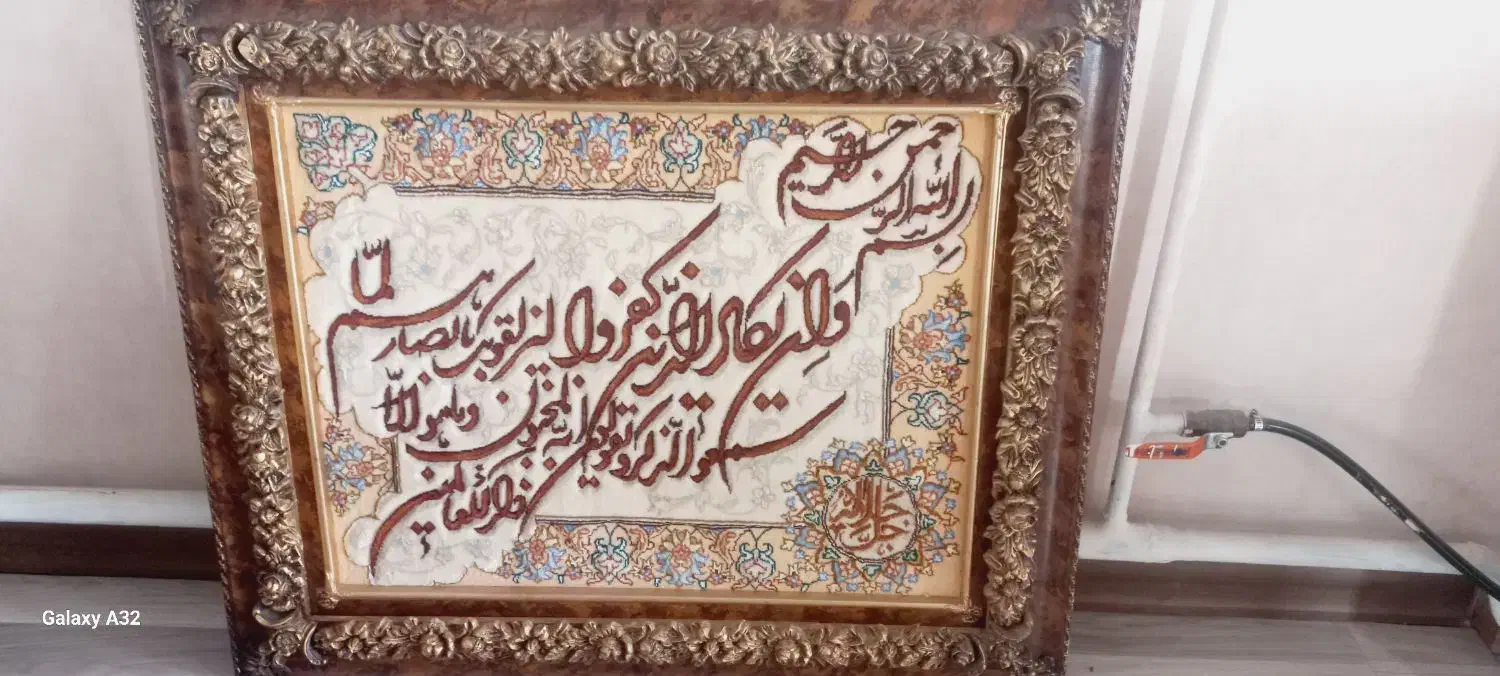 بسم الله الرحمن الرحيم
وَاِن يكاد الذين كفروا ليزلقونك بابصارهم لمّا
سمعوا الذكر ويقولون انه لمجنون وما هو الّا
ذكر للعالمين
جل جلاله
Galaxy A32